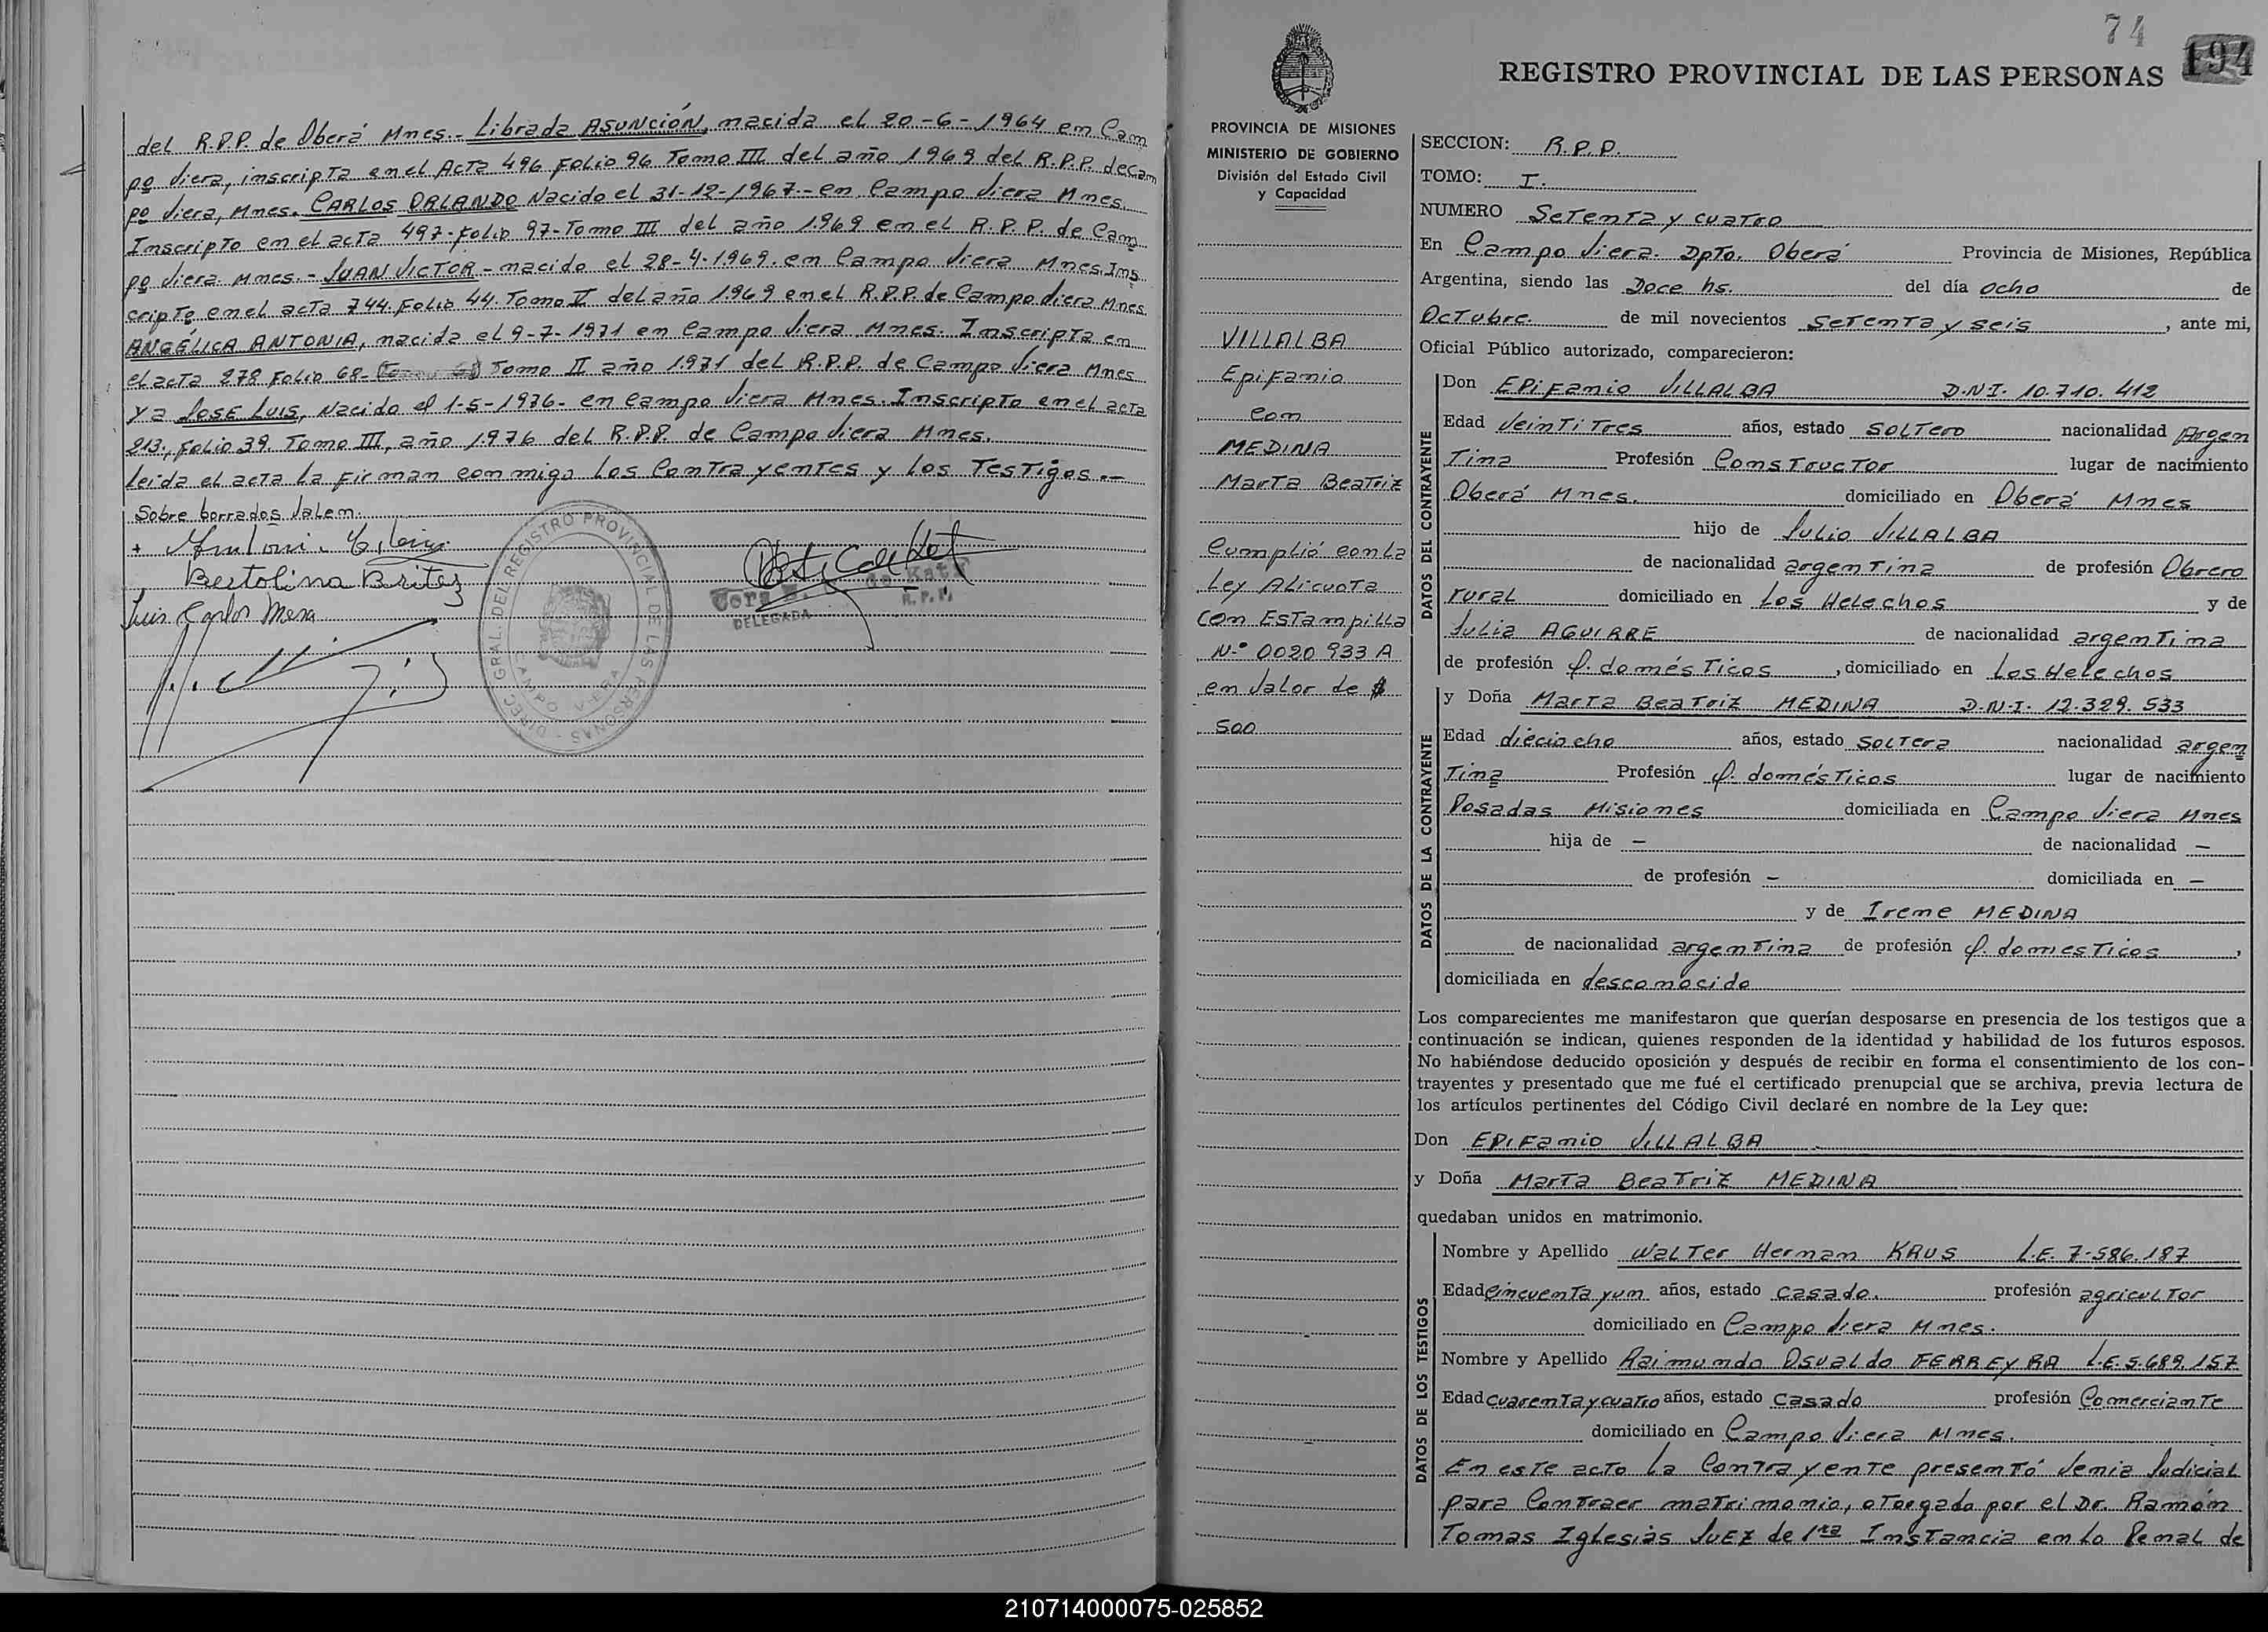 del R.P.P. de Oberá Mnes.- Librada ASUNCIÓN, nacida el 20-6-1964 en Cam
po Viera, inscripta en el Acta 496 Folio 96 Tomo III del año 1969 del R.P.P. de Cam
po Viera, Mnes. CARLOS ORLANDO Nacido el 31-12-1967.- en Campo Viera Mnes.
Inscripto en el acta 497-Folio 97-Tomo III del año 1.969 en el R.P.P. de Cam
po Viera. Mnes.- JUAN VICTOR - nacido el 28-4-1.969. en Campo Viera Mnes. Ins
cripto en el acta 744. Folio 44. Tomo V del año 1.969 en el R.P.P. de Campo Viera Mnes
ANGÉLICA ANTONIA, nacida el 9-7-1971 en Campo Viera Mnes. Inscripta en
el acta 278 Folio 68- Tomo II año 1.971 del R.P.P. de Campo Viera Mnes
y a JOSE LUIS, Nacido el 1-5-1976- en Campo Viera Mnes. Inscripto en el acta
213., Folio 39. Tomo III, año 1.976 del R.P.P. de Campo Viera Mnes.
Leida el acta la firman conmigo los Contrayentes y los Testigos.-
Sobre borrados Valen.
Bertolina Britez
Luis Carlos Mesa
DIREC. GRAL. DEL REGISTRO PROVINCIAL DE LAS PERSONAS
CAMPO VIERA
de Katz
R.P.P.
DELEGADA
74
194
REGISTRO PROVINCIAL DE LAS PERSONAS
PROVINCIA DE MISIONES
MINISTERIO DE GOBIERNO
División del Estado Civil
y Capacidad
VILLALBA
Epifanio
con
MEDINA
Marta Beatriz
Cumplió con la
Ley Alicuota
con Estampilla
N.º 0020933 A
en Valor de $
500
SECCION: R.P.P.
TOMO: I.
NUMERO Setenta y cuatro
En Campo Viera. Dpto. Oberá Provincia de Misiones, República
Argentina, siendo las Doce hs. del día ocho de
Octubre. de mil novecientos setenta y seis, ante mi,
Oficial Público autorizado, comparecieron:
DATOS DEL CONTRAYENTE
Don EPIFANIO VILLALBA D.N.I. 10.710.412
Edad Veintitres años, estado SOLTERO nacionalidad Argen
tina Profesión Constructor lugar de nacimiento
Oberá Mnes. domiciliado en Oberá Mnes
hijo de Julio VILLALBA
de nacionalidad argentina de profesión Obrero
rural domiciliado en Los Helechos y de
Julia AGUIRRE de nacionalidad argentina
de profesión q. domésticos, domiciliado en Los Helechos
DATOS DE LA CONTRAYENTE
y Doña Marta Beatriz MEDINA D.N.I. 12.329.533
Edad dieciocho años, estado soltera nacionalidad argen
tina Profesión q. domésticos lugar de nacimiento
Posadas Misiones domiciliada en Campo Viera Mnes
hija de — de nacionalidad —
de profesión — domiciliada en —
y de Irene MEDINA
de nacionalidad argentina de profesión q. domesticos,
domiciliada en desconocido
Los comparecientes me manifestaron que querían desposarse en presencia de los testigos que a
continuación se indican, quienes responden de la identidad y habilidad de los futuros esposos.
No habiéndose deducido oposición y después de recibir en forma el consentimiento de los con-
trayentes y presentado que me fué el certificado prenupcial que se archiva, previa lectura de
los artículos pertinentes del Código Civil declaré en nombre de la Ley que:
Don EPIFANIO VILLALBA
y Doña Marta Beatriz MEDINA
quedaban unidos en matrimonio.
DATOS DE LOS TESTIGOS
Nombre y Apellido Walter Hernan KAUS L.E. 7.586.187
Edad cincuenta y un años, estado casado. profesión agricultor
domiciliado en Campo Viera Mnes.
Nombre y Apellido Raimundo Osvaldo FERREYRA L.E. 5.689.157
Edad cuarenta y cuatro años, estado casado profesión Comerciante
domiciliado en Campo Viera Mnes.
En este acto la Contrayente presentó Venia Judicial
para Contraer matrimonio, otorgado por el Dr. Ramón
Tomas Iglesias Juez de 1ra Instancia en lo Penal de
210714000075-025852